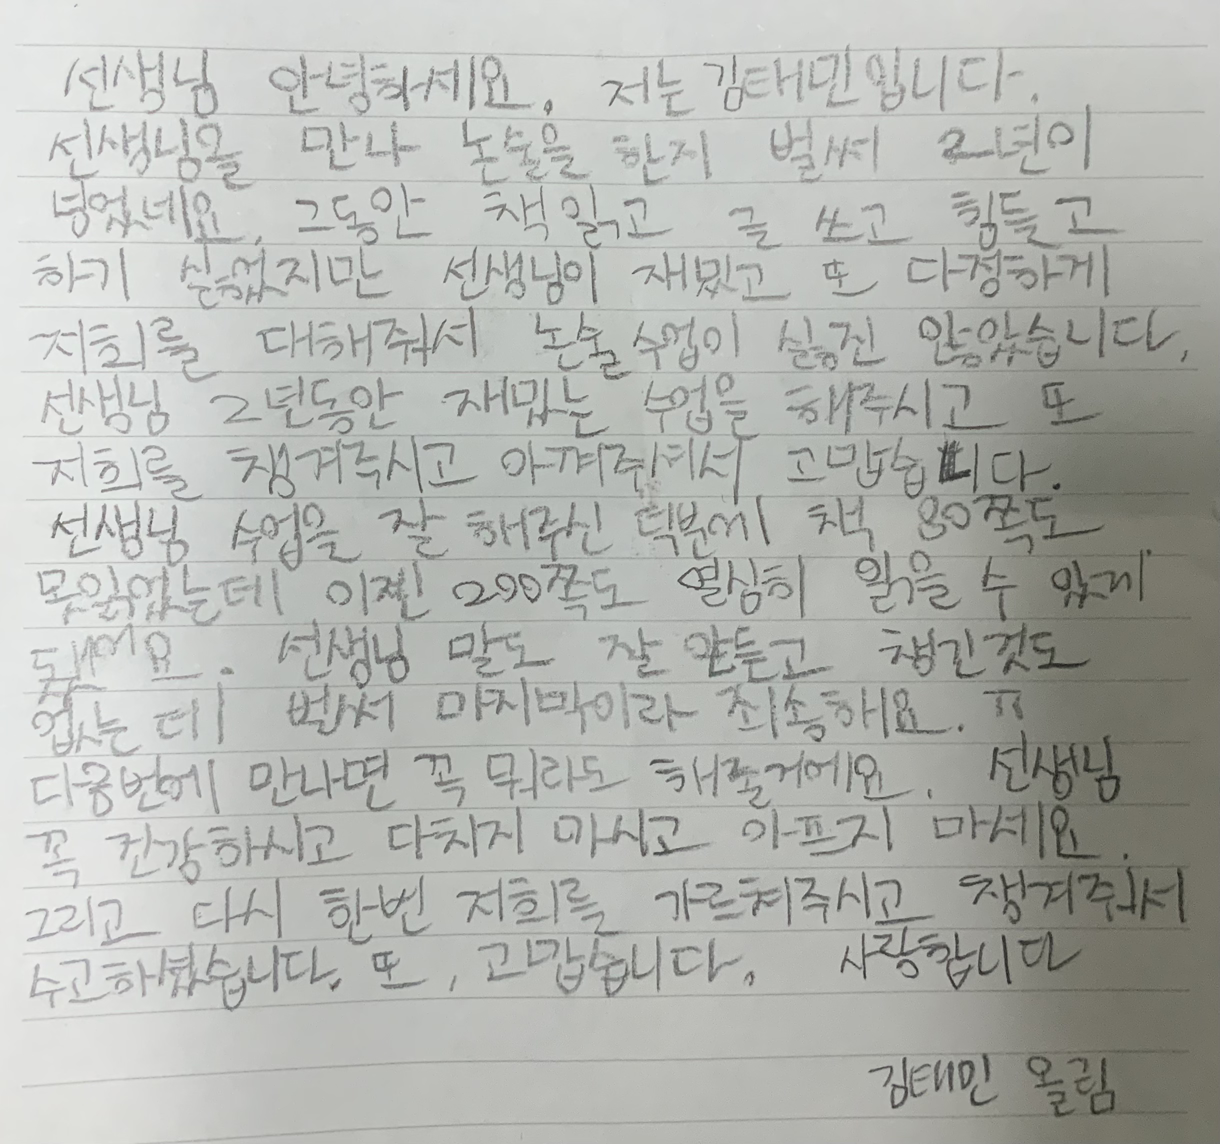 선생님 안녕하세요. 저는 김태민입니다.
선생님을 만나 논술을 한지 벌써 2년이
넘었네요. 그동안 책 읽고 글 쓰고 힘들고
하기 싫었지만 선생님이 재밌고 또 다정하게
저희를 대해줘서 논술 수업이 싫진 않았습니다.
선생님 2년동안 재밌는 수업을 해주시고 또
저희를 챙겨주시고 아껴주셔서 고맙습니다.
선생님 수업을 잘 해주신 덕분에 책 80쪽도
못읽었는데 이젠 200쪽도 열심히 읽을 수 있게
됐어요. 선생님 말도 잘 안듣고 챙긴것도
없는데 벌써 마지막이라 죄송해요. ㅠ
다음번에 만나면 꼭 뭐라도 해줄거에요. 선생님
꼭 건강하시고 다치지 마시고 아프지 마세요.
그리고 다시 한번 저희를 가르쳐주시고 챙겨줘서
수고하셨습니다. 또, 고맙습니다. 사랑합니다
김태민 올림